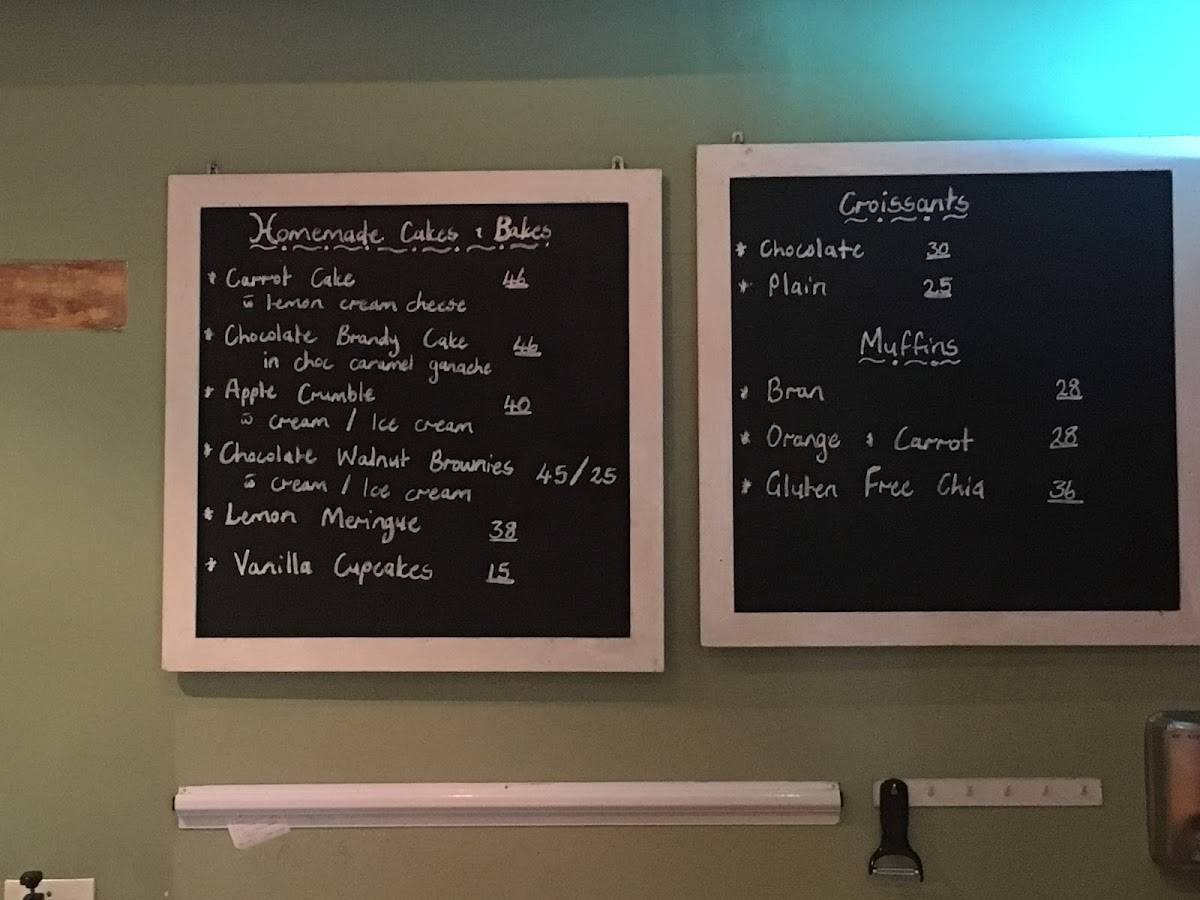 Homemade Cakes & Bakes
* Carrot Cake 46
w lemon cream cheese
* Chocolate Brandy Cake 46
in choc caramel ganache
* Apple Crumble 40
w cream / Ice cream
* Chocolate Walnut Brownies 45/25
w cream / Ice cream
* Lemon Meringue 38
* Vanilla Cupcakes 15
Croissants
* Chocolate 30
* Plain 25
Muffins
* Bran 28
* Orange & Carrot 28
* Gluten Free Chia 36